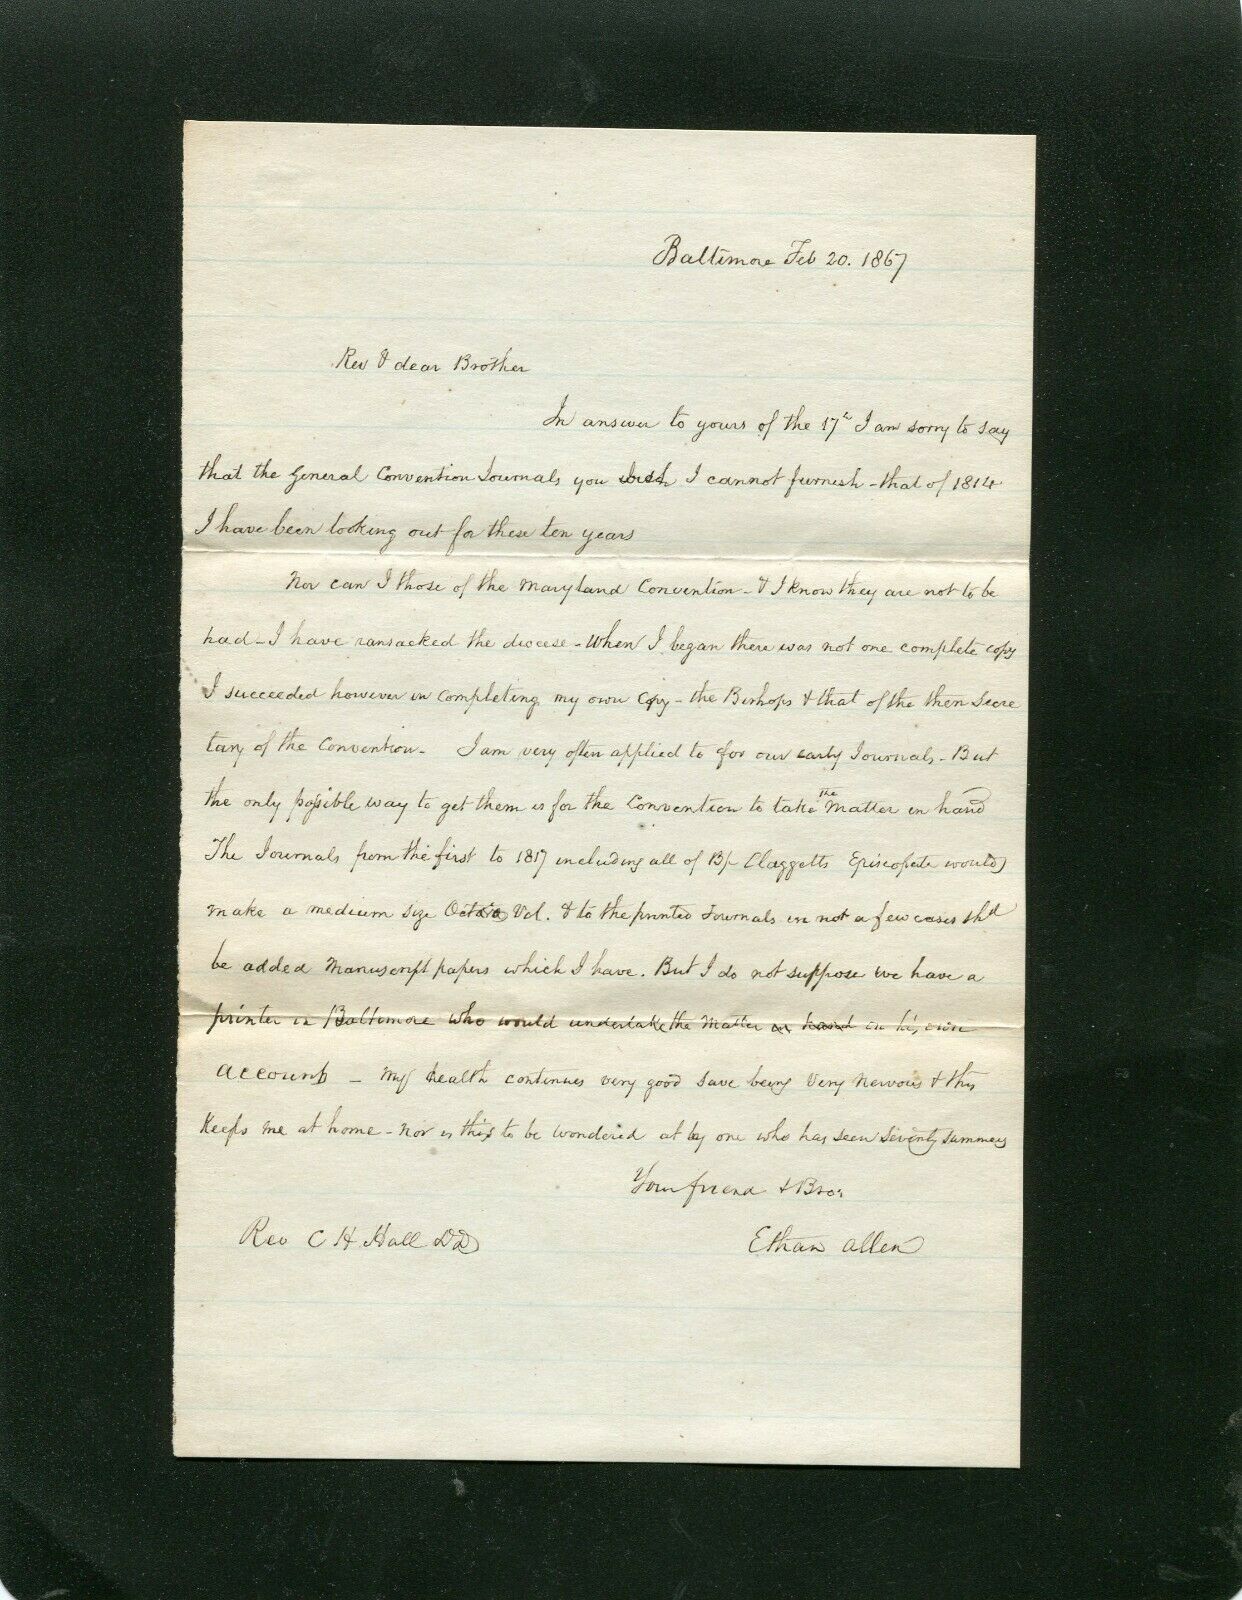 Baltimore Feb 20. 1867
Rev & dear Brother
In answer to yours of the 17th I am sorry to say
that the General Convention Journals you wish I cannot furnish - that of 1814
I have been looking out for these ten years
Nor can I those of the Maryland Convention - & I know they are not to be
had - I have ransacked the diocese - When I began there was not one complete copy
I succeeded however in completing my own copy - the Bishops & that of the then Secre
tary of the Convention - I am very often applied to for our early Journals - But
the only possible way to get them is for the Convention to take the Matter in hand
The Journals from the first to 1817 including all of Bp Claggetts Episcopate would
make a medium size Octavo Vol. & to the printed Journals in not a few cases shd
be added Manuscript papers which I have. But I do not suppose we have a
printer in Baltimore who would undertake the Matter in hand on his own
account - My health continues very good save being very nervous & this
keeps me at home - nor is this to be wondered at by one who has seen seventy summers
Your friend & Bror
Rev C H Hall DD
Ethan Allen